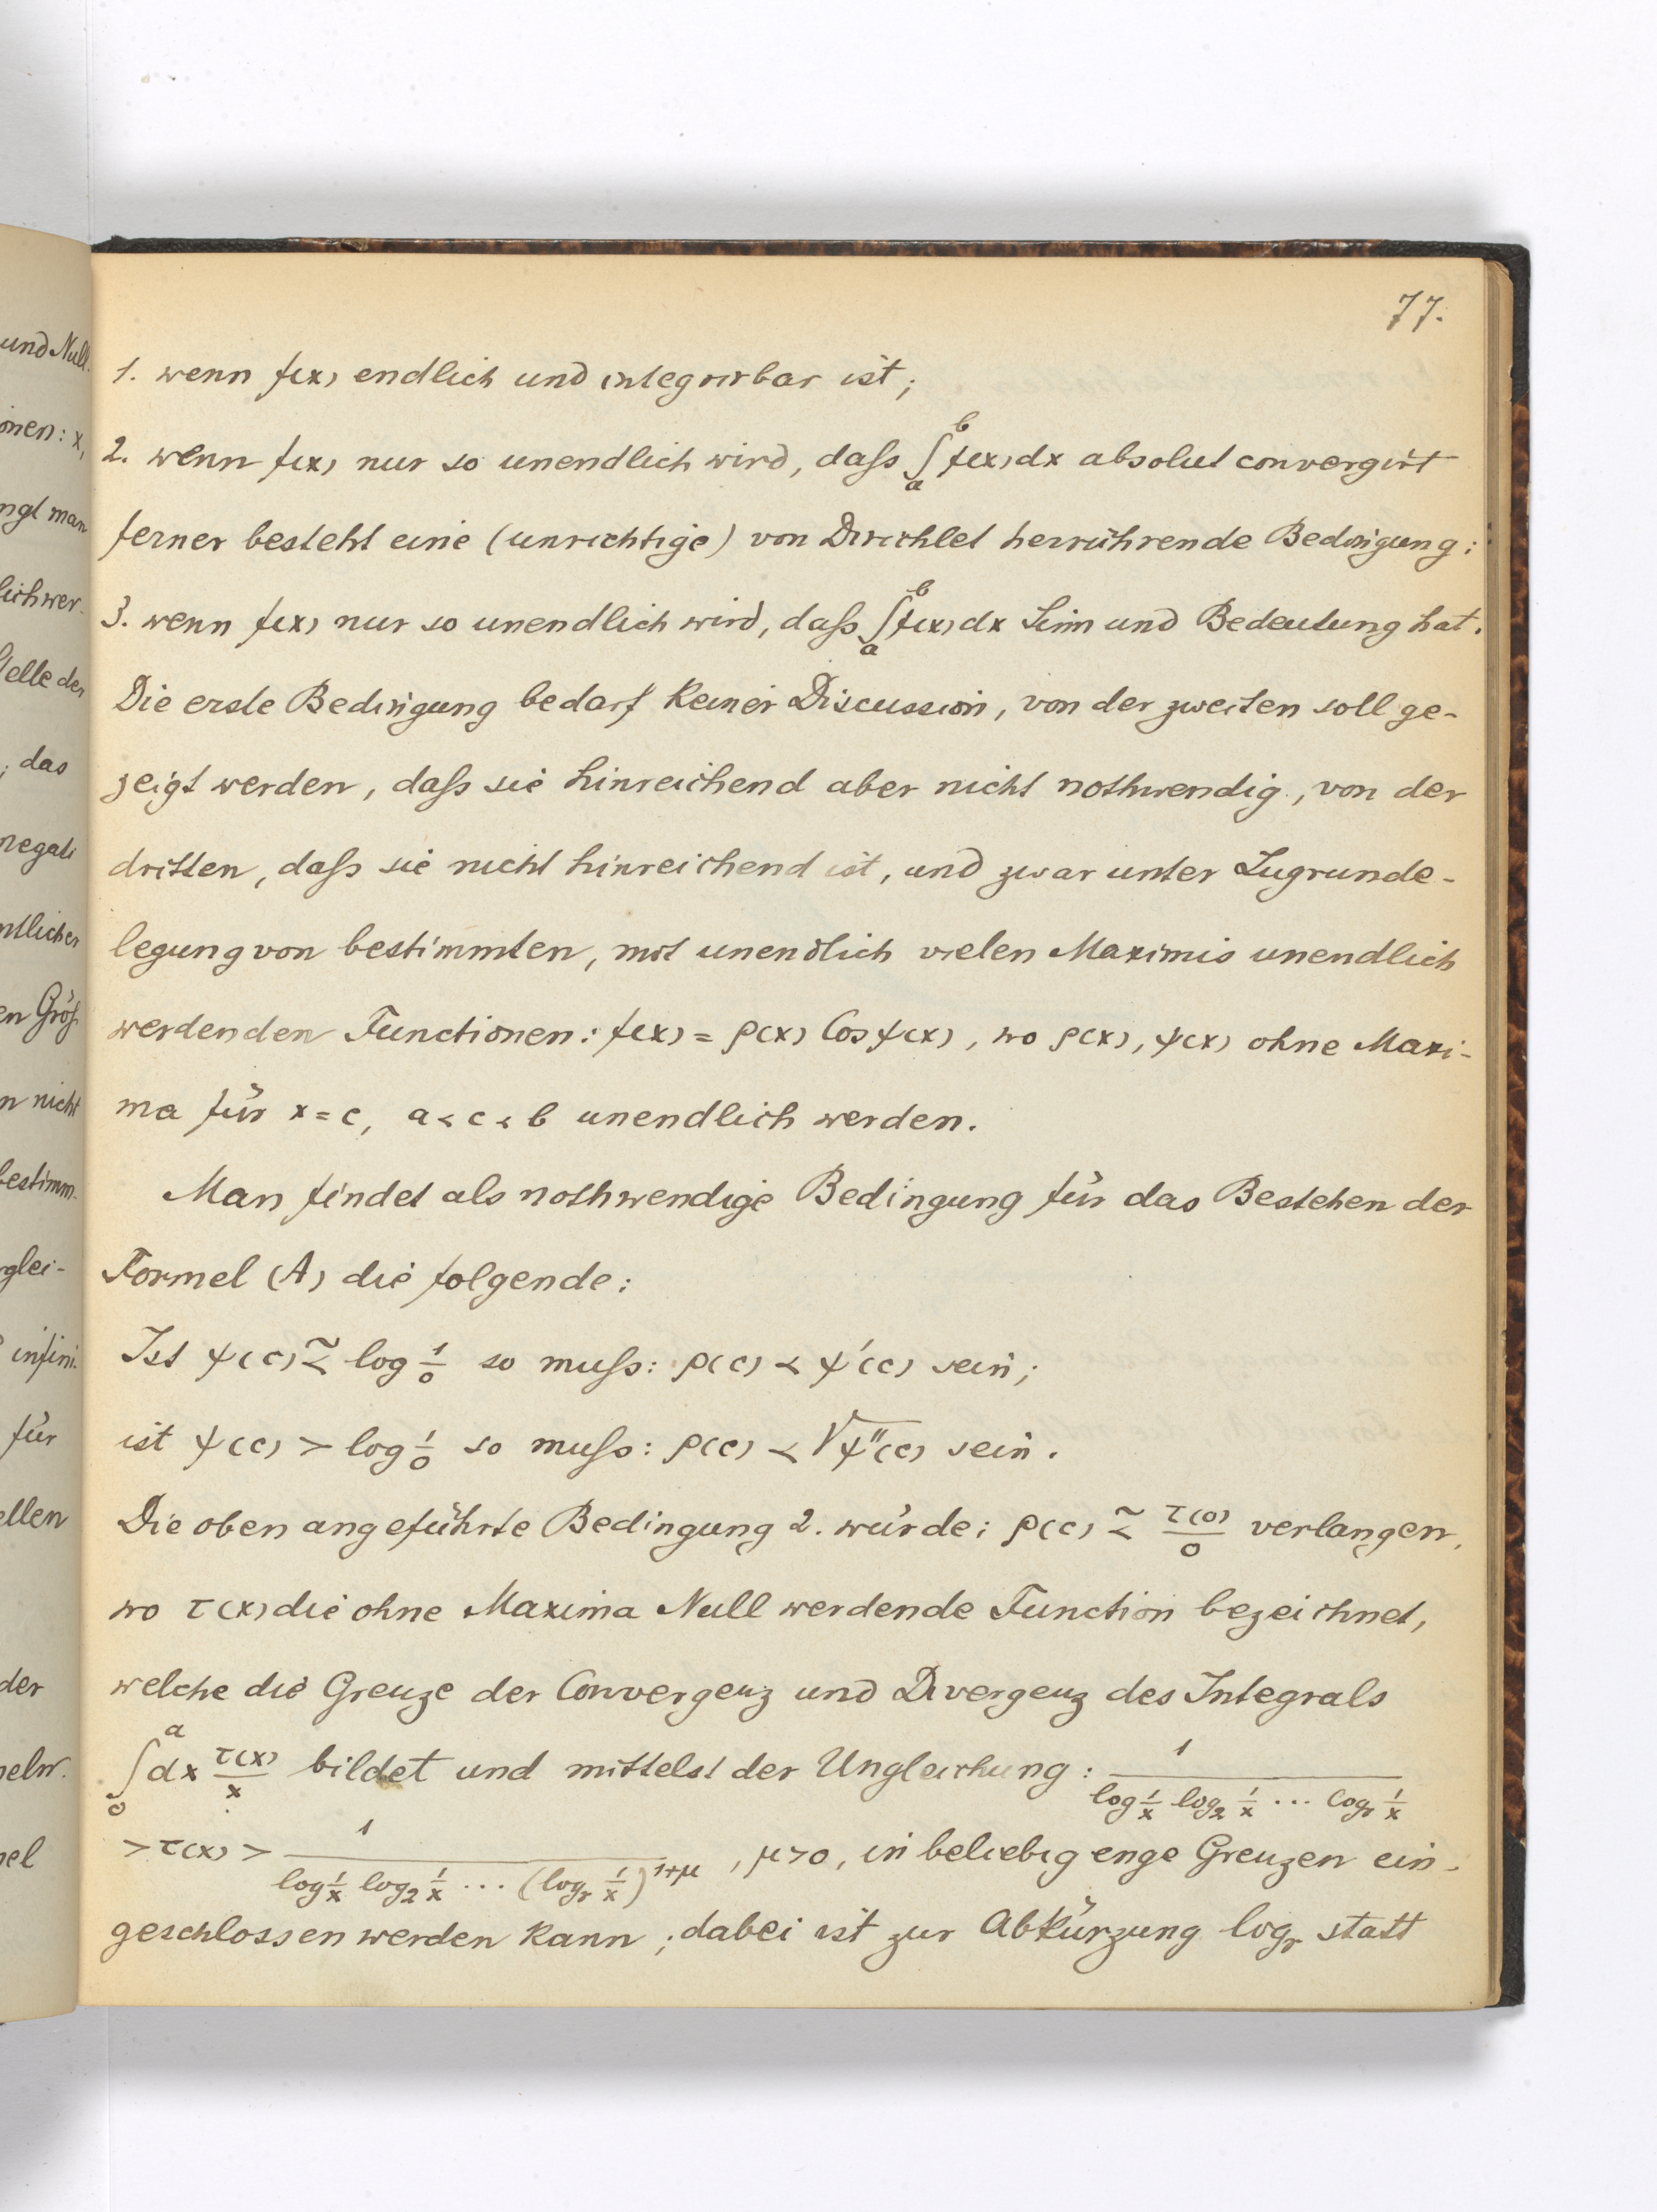 und Null.
onen: x,
ngt man
lich wer-
telle der
; das
negati
ntlicher
en Größ
n nicht
bestimm-
glei-
infini-
für
ellen
der
nel
77.
1. wenn f(x) endlich und integrirbar ist;
2. wenn f(x) nur so unendlich wird, daſs ∫_a^b f(x)dx absolut convergirt
ferner besteht eine (unrichtige) von Dirichlet herrührende Bedingung:
3. wenn f(x) nur so unendlich wird, daſs ∫_a^b f(x)dx Sinn und Bedeutung hat.
Die erste Bedingung bedarf keiner Discussion, von der zweiten soll ge-
zeigt werden, daſs sie hinreichend aber nicht nothwendig, von der
dritten, daſs sie nicht hinreichend ist, und zwar unter Zugrunde-
legung von bestimmten, mit unendlich vielen Maximis unendlich
werdenden Functionen: f(x) = ρ(x) Cos ψ(x), wo ρ(x), ψ(x) ohne Maxi-
ma für x = c, a < c < b unendlich werden.
Man findet als nothwendige Bedingung für das Bestehen der
Formel (A) die folgende:
Ist ψ(c) ≲ log 1/0 so muſs: ρ(c) < ψ'(c) sein;
ist ψ(c) > log 1/0 so muſs: ρ(c) < √ψ''(c) sein.
Die oben angeführte Bedingung 2. würde: ρ(c) ≲ τ(0)/0 verlangen,
wo τ(x) die ohne Maxima Null werdende Function bezeichnet,
welche die Grenze der Convergenz und Divergenz des Integrals
∫_0^a dx τ(x)/x bildet und mittelst der Ungleichung: 1/(log 1/x log₂ 1/x ... log_r 1/x)
> τ(x) > 1/(log 1/x log₂ 1/x ... (log_r 1/x)^{1+μ}), μ > 0, in beliebig enge Grenzen ein-
geschlossen werden kann; dabei ist zur Abkürzung log_r statt